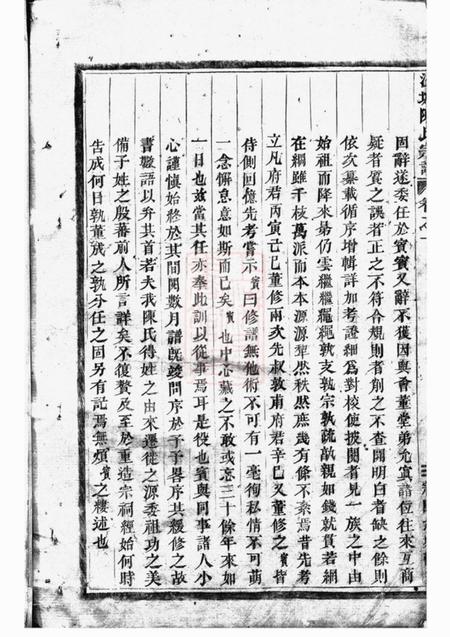 固辭遂委任於賓賓又辭不獲因與會董堂弟允寘諸位往來互商
疑者實之誤者正之不符合規則者削之不查開明白者缺之餘則
依次纂載循序增輯詳加考證細為對校使披閱者見一族之中由
始祖而降來昜仍雲繼繼繩繩孰支孰宗孰疏孰親如錢就貫若網
在綱雖千枝萬派而本本源源犂然秩然庶幾有條不紊焉昔先考
立凡府君丙寅己巳董修兩次先叔敦甫府君辛巳又董修之賓皆
侍側回憶先考嘗示賓曰修譜無他術不可有一毫徇私情不可萌
一念懈怠意如斯而已矣賓也中心藏之不敢或忘三十餘年來如
一日也故當其任亦奉此訓以從事焉耳是役也賓與同事諸人小
心謹慎始終於其間閱數月譜既竣問序於予予畧序其綴修之故
書數語以弁其首若夫我陳氏得姓之由來遷徙之源委祖功之美
備子姓之殷蕃前人所言詳矣不復贅及至於重造宗祠經始何時
告成何日孰董成之孰分任之固另有記焉無煩賓之縷述也